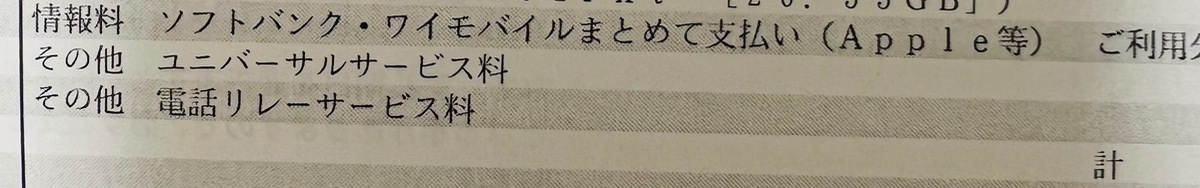 [20.55GB])
情報料 ソフトバンク・ワイモバイルまとめて支払い(Apple等) ご利用
その他 ユニバーサルサービス料
その他 電話リレーサービス料
計